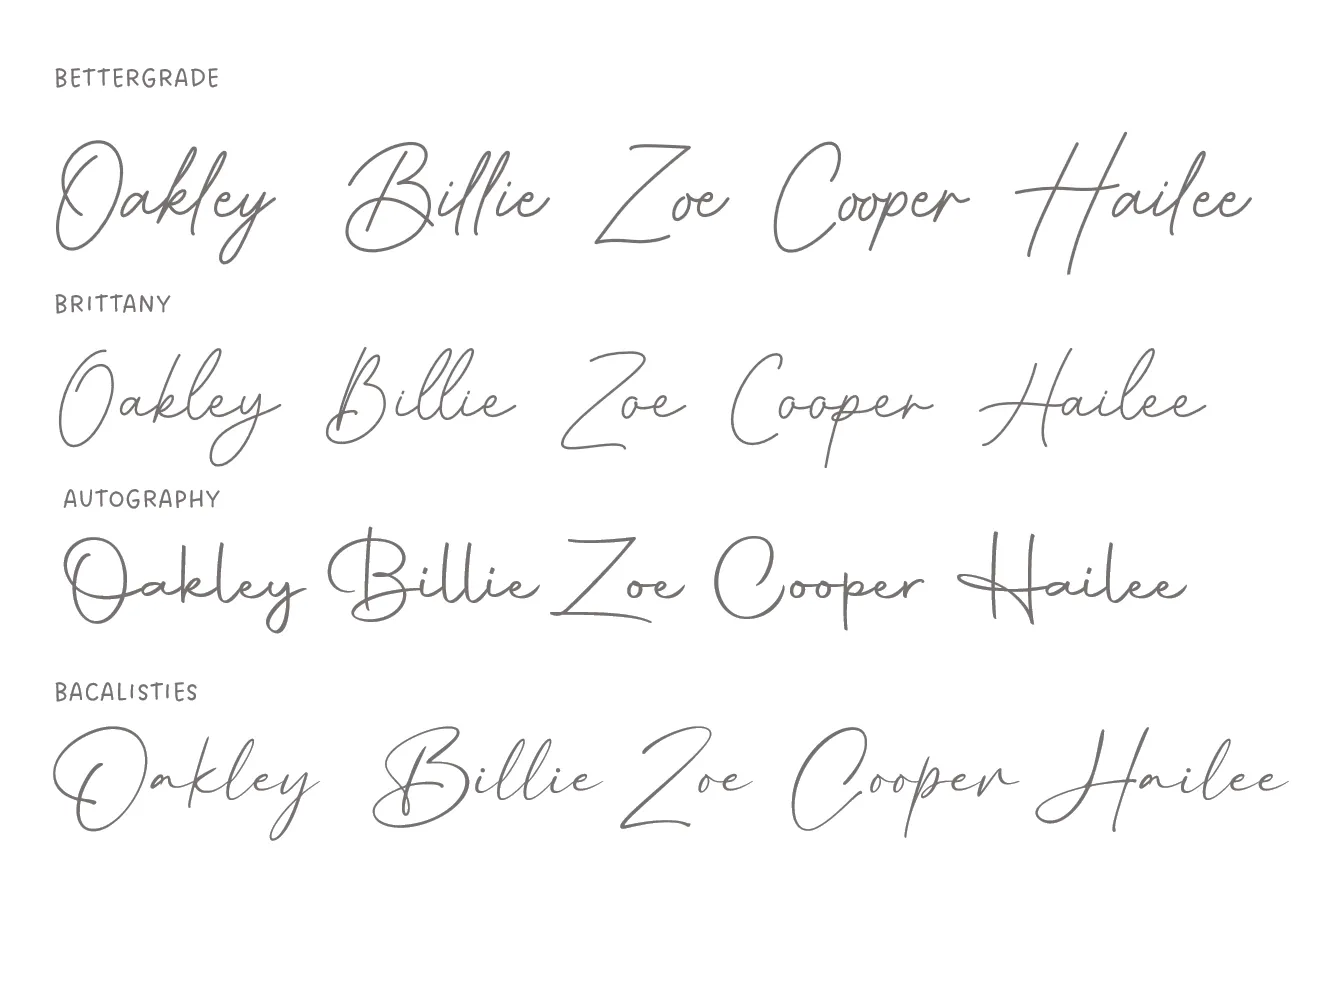 BETTERGRADE
Oakley Billie Zoe Cooper Hailee
BRITTANY
Oakley Billie Zoe Cooper Hailee
AUTOGRAPHY
Oakley Billie Zoe Cooper Hailee
BACALISTIES
Oakley Billie Zoe Cooper Hailee